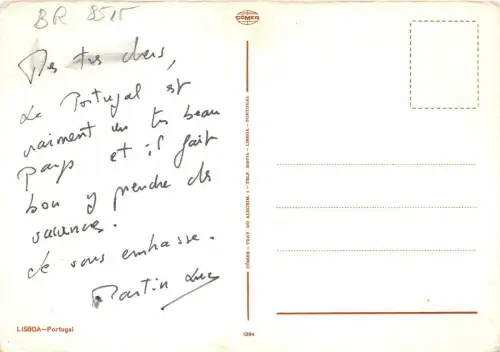 BR 8515
Mes très chers,
Le Portugal est
vraiment un très beau
pays et il fait
bon y prendre des
vacances.
Je vous embrasse.
Martin Luc
COMER
COMER - TRAV. DO ALECRIM, 1 - TELF. - LISBOA - PORTUGAL
LISBOA—Portugal
1264